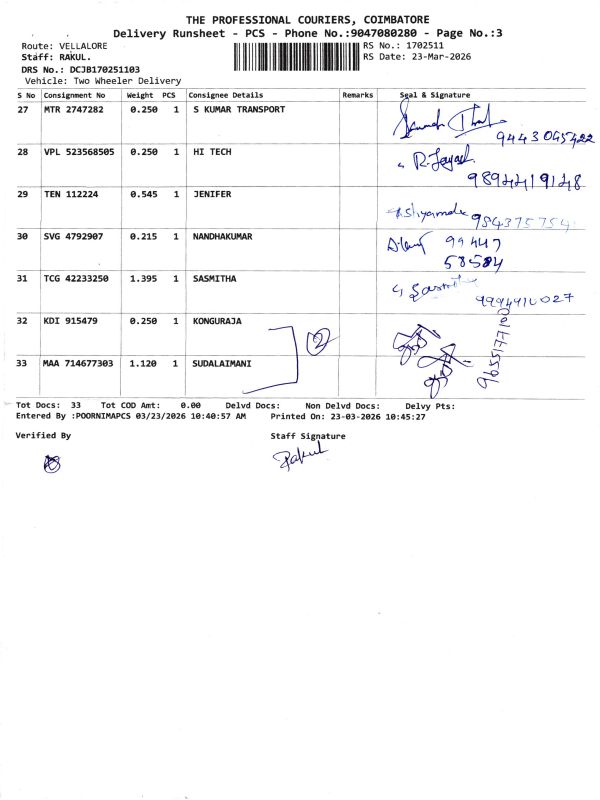 THE PROFESSIONAL COURIERS, COIMBATORE
Delivery Runsheet - PCS - Phone No.:9047080280 - Page No.:3
Route: VELLALORE RS No.: 1702511
Staff: RAKUL. RS Date: 23-Mar-2026
DRS No.: DCJB170251103
Vehicle: Two Wheeler Delivery
S No Consignment No Weight PCS Consignee Details Remarks Seal & Signature
27 MTR 2747282 0.250 1 S KUMAR TRANSPORT
9443045422
28 VPL 523568505 0.250 1 HI TECH R. Jayash
9894419148
29 TEN 112224 0.545 1 JENIFER
984375754
30 SVG 4792907 0.215 1 NANDHAKUMAR 99447
58584
31 TCG 42233250 1.395 1 SASMITHA
9994910027
32 KDI 915479 0.250 1 KONGURAJA
2
33 MAA 714677303 1.120 1 SUDALAIMANI
Tot Docs: 33 Tot COD Amt: 0.00 Delvd Docs: Non Delvd Docs: Delvy Pts:
Entered By :POORNIMAPCS 03/23/2026 10:40:57 AM Printed On: 23-03-2026 10:45:27
Verified By Staff Signature
Rakul